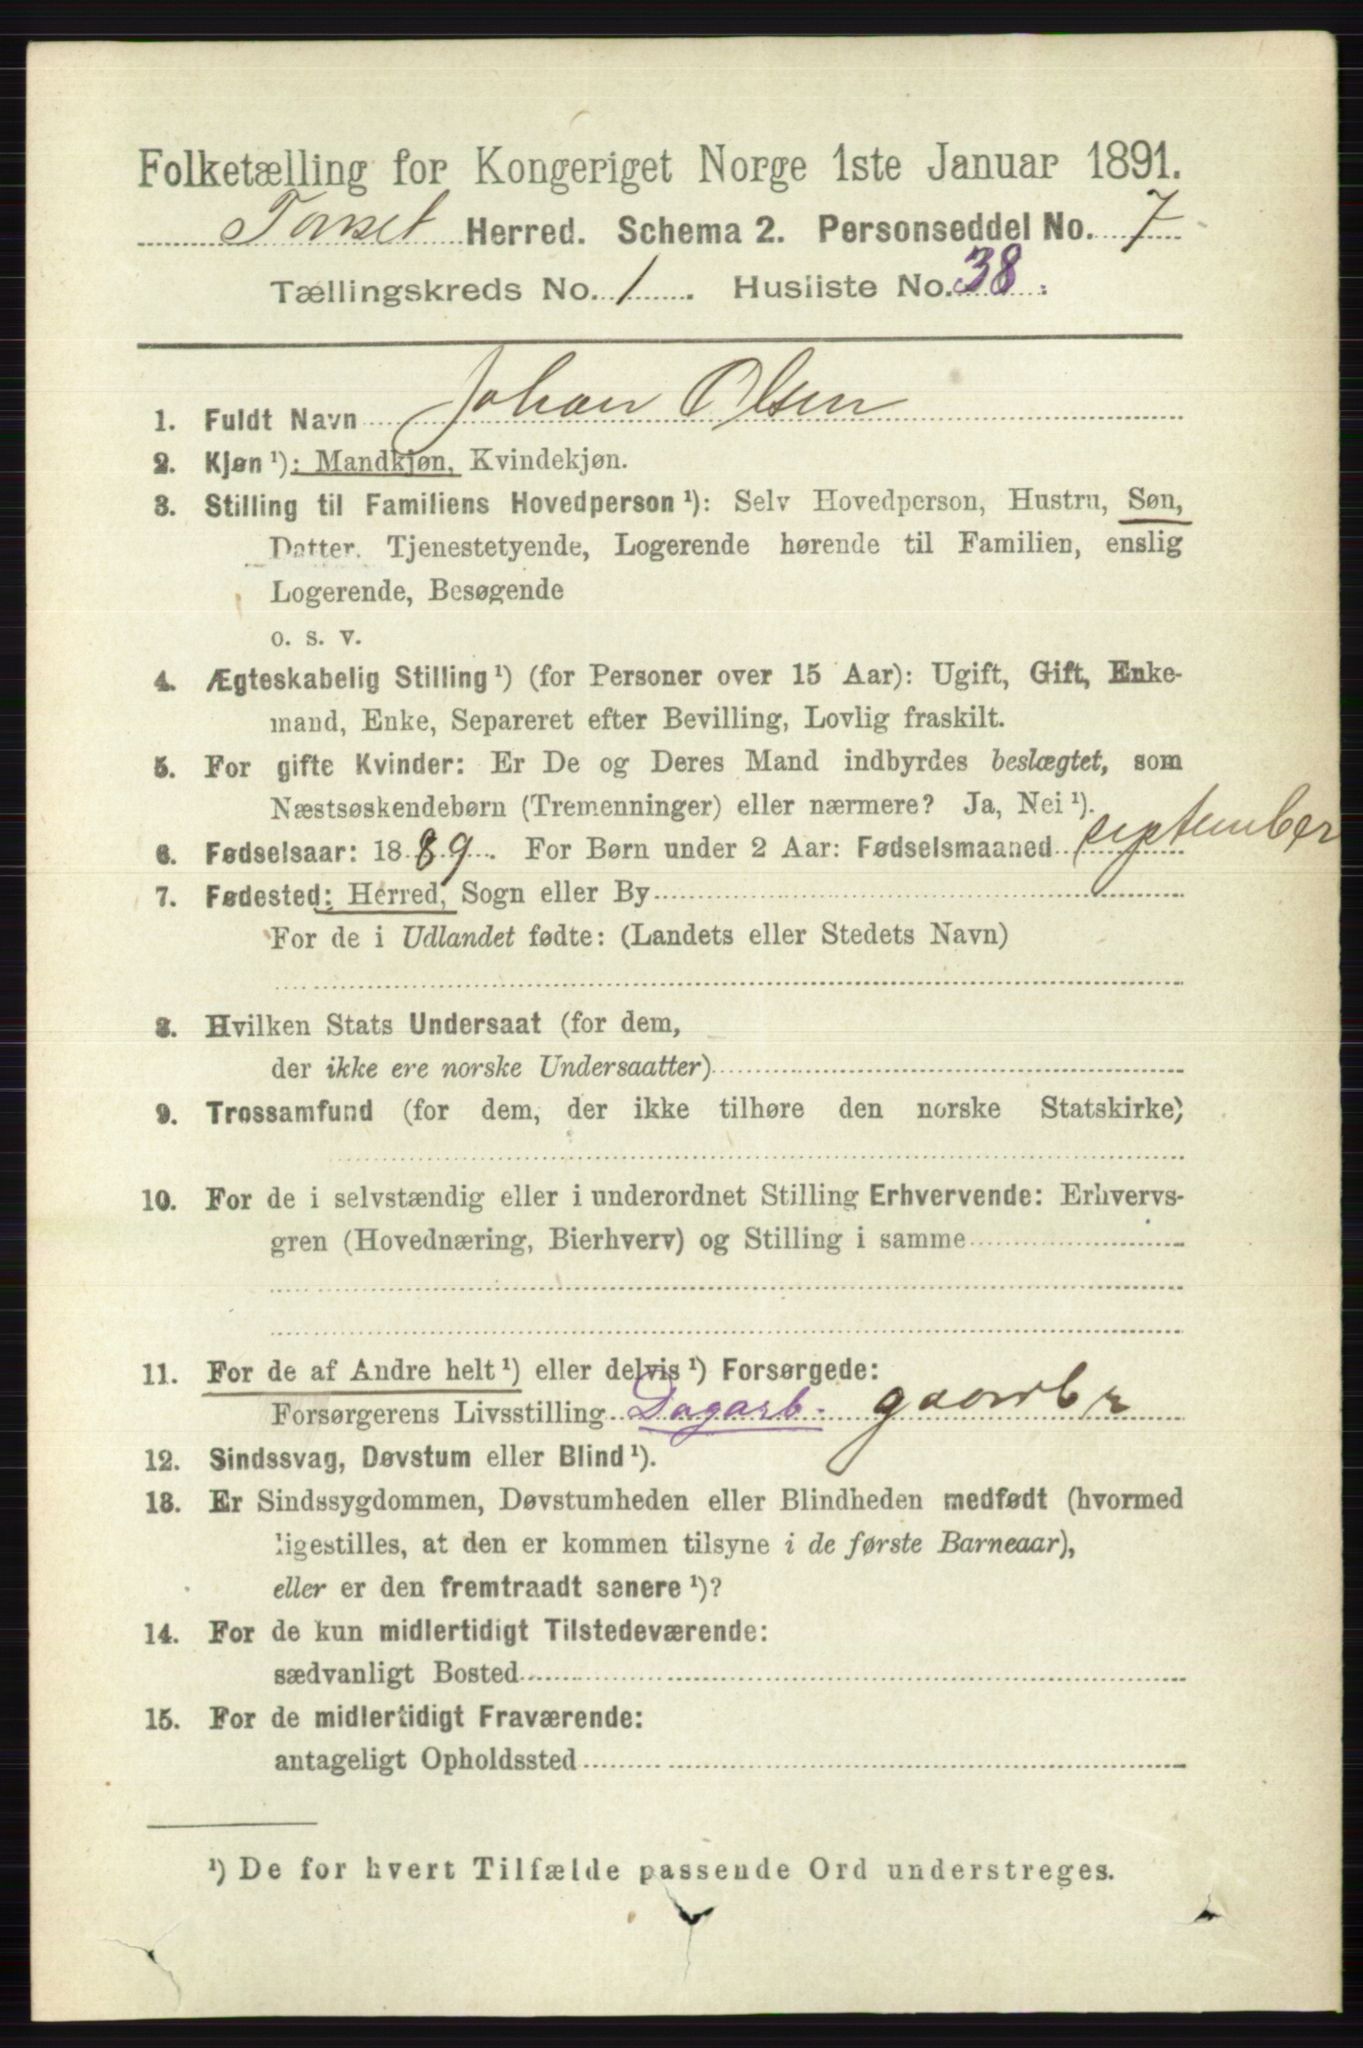 Folketælling for Kongeriget Norge 1ste Januar 1891.
Tonset Herred. Schema 2. Personseddel No. 7
Tællingskreds No. 1. Husliste No. 38.
1. Fuldt Navn Johan Olsen
2. Kjøn ¹): Mandkjøn, Kvindekjøn.
3. Stilling til Familiens Hovedperson ¹): Selv Hovedperson, Hustru, Søn,
Datter, Tjenestetyende, Logerende hørende til Familien, enslig
Logerende, Besøgende
o. s. v.
4. Ægteskabelig Stilling ¹) (for Personer over 15 Aar): Ugift, Gift, Enke-
mand, Enke, Separeret efter Bevilling, Lovlig fraskilt.
5. For gifte Kvinder: Er De og Deres Mand indbyrdes beslægtet, som
Næstsøskendebørn (Tremenninger) eller nærmere? Ja, Nei ¹).
6. Fødselsaar: 1889. For Børn under 2 Aar: Fødselsmaaned september
7. Fødested: Herred, Sogn eller By
For de i Udlandet fødte: (Landets eller Stedets Navn)
8. Hvilken Stats Undersaat (for dem,
der ikke ere norske Undersaatter)
9. Trossamfund (for dem, der ikke tilhøre den norske Statskirke)
10. For de i selvstændig eller i underordnet Stilling Erhvervende: Erhvervs-
gren (Hovednæring, Bierhverv) og Stilling i samme
11. For de af Andre helt ¹) eller delvis ¹) Forsørgede:
Forsørgerens Livsstilling Dagarb.
12. Sindssvag, Døvstum eller Blind ¹).
13. Er Sindssygdommen, Døvstumheden eller Blindheden medfødt (hvormed
ligestilles, at den er kommen tilsyne i de første Barneaar),
eller er den fremtraadt senere ¹)?
14. For de kun midlertidigt Tilstedeværende:
sædvanligt Bosted
15. For de midlertidigt Fraværende:
antageligt Opholdssted
¹) De for hvert Tilfælde passende Ord understreges.